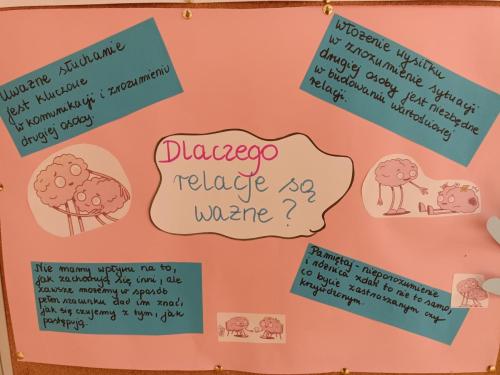 Uważne słuchanie
jest kluczowe
w komunikacji i zrozumieniu
drugiej osoby.
Włożenie wysiłku
w zrozumienie sytuacji
drugiej osoby jest niezbędne
w budowaniu wartościowej
relacji.
Dlaczego
relacje są
ważne?
Nie mamy wpływu na to,
jak zachowują się inni, ale
zawsze możemy w sposób
pełen szacunku dać im znać,
jak się czujemy z tym, jak
postępują.
Pamiętaj - nieporozumienie
i różnica zdań to nie to samo,
co bycie zastraszanym czy
krzywdzonym.